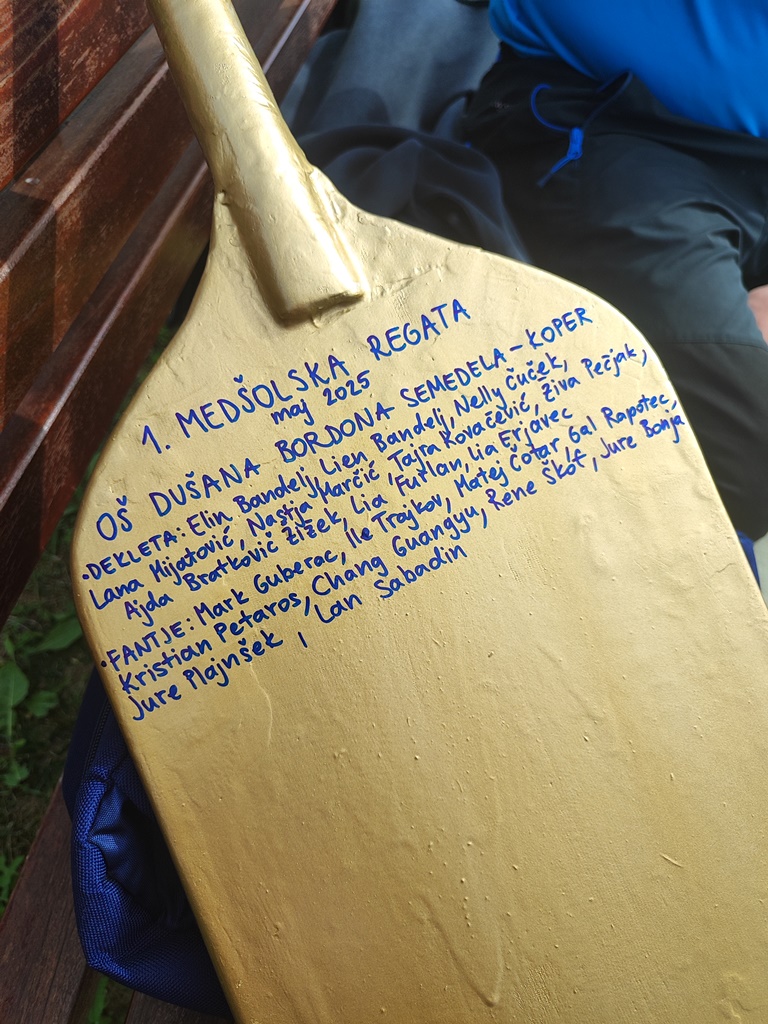 1. MEDŠOLSKA REGATA
maj 2025
OŠ DUŠANA BORDONA SEMEDELA - KOPER
• DEKLETA: Elin Bandelj, Lien Bandelj, Nelly Čuček,
Lana Mijatović, Nastja Marčić, Tajra Kovačević, Živa Pečjak,
Ajda Bratković Žižek, Lia Furlan, Lia Erjavec
• FANTJE: Mark Guberac, Ile Trajkov, Matej Čotar Gal Rapotec,
Kristian Petaros, Chang Guangyu, Rene Škof, Jure Bonja
Jure Plajnšek, Lan Sabadin